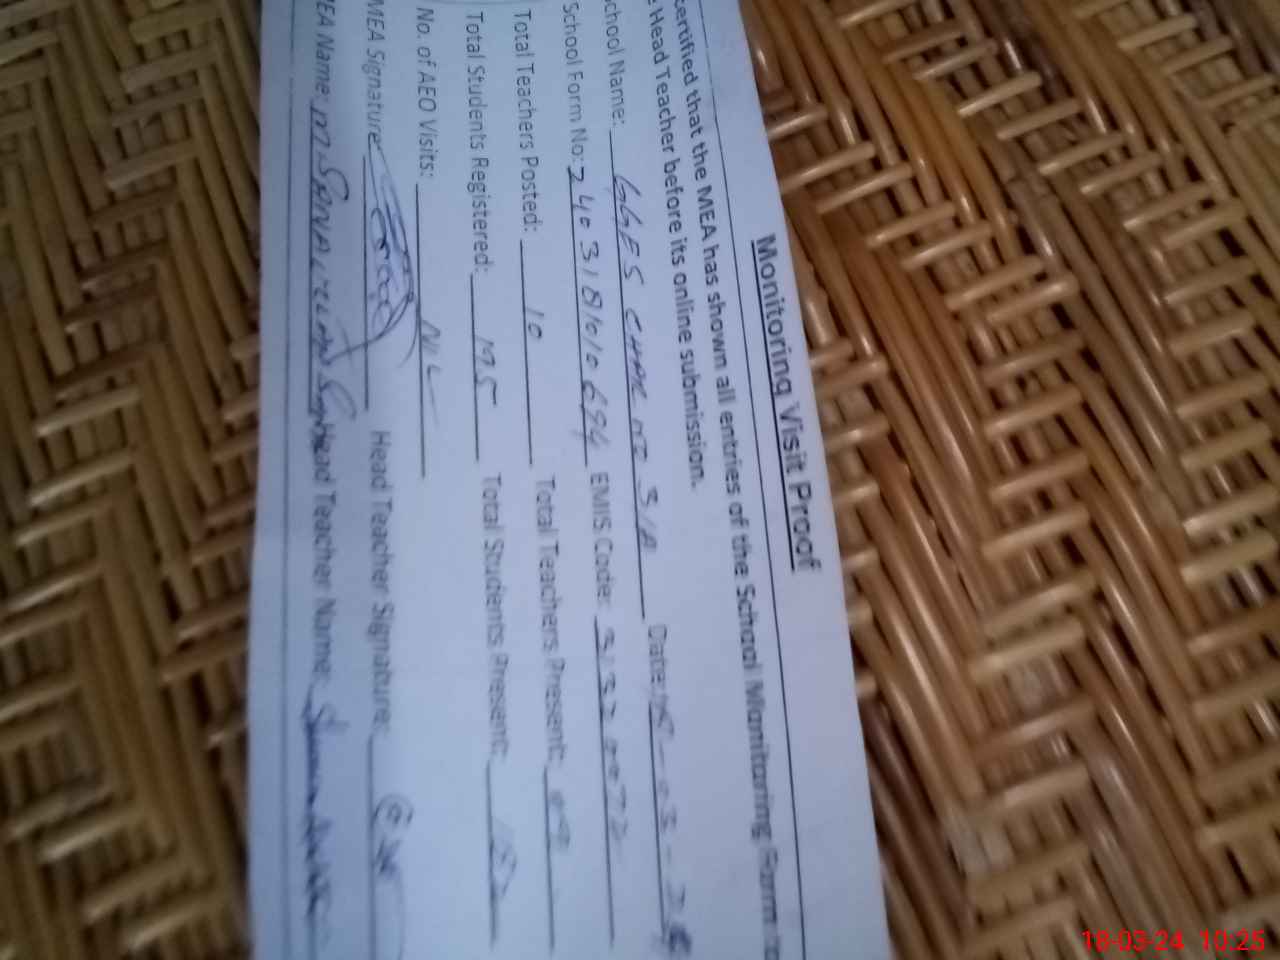 Monitoring Visit Proof
certified that the MEA has shown all entries of the School Monitoring Form to
e Head Teacher before its online submission.
School Name: GGES CHAK NO 31A Date: 18-03-24
School Form No: 2403181010694 EMIS Code:
Total Teachers Posted: 10 Total Teachers Present: 09
Total Students Registered: 195 Total Students Present:
No. of AEO Visits: NIL
MEA Signature: Head Teacher Signature:
EA Name: Head Teacher Name:
18-03-24 10:25